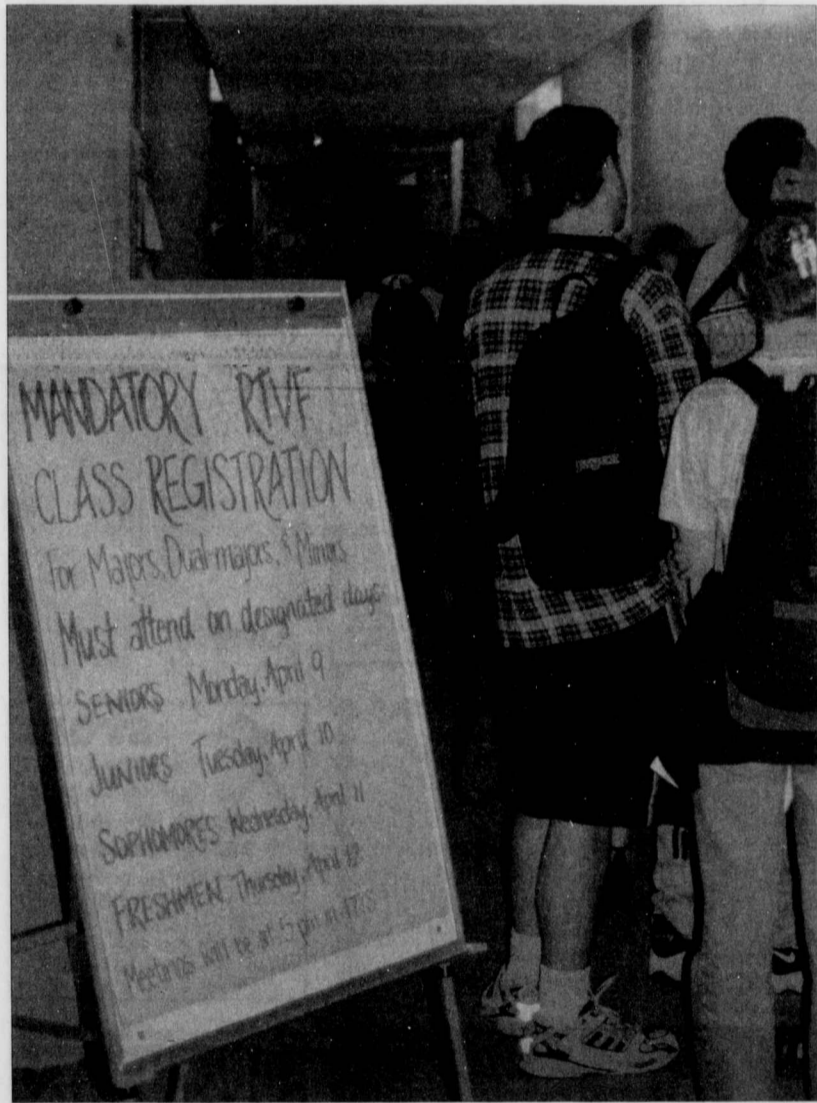 MANDATORY RTVF
CLASS REGISTRATION
For Majors, Dual-majors, & Minors
Must attend on designated days:
SENIORS Monday, April 9
JUNIORS Tuesday, April 10
SOPHOMORES Wednesday, April 11
FRESHMEN Thursday, April 12
Meetings will be at 5 pm in
JANSPORT